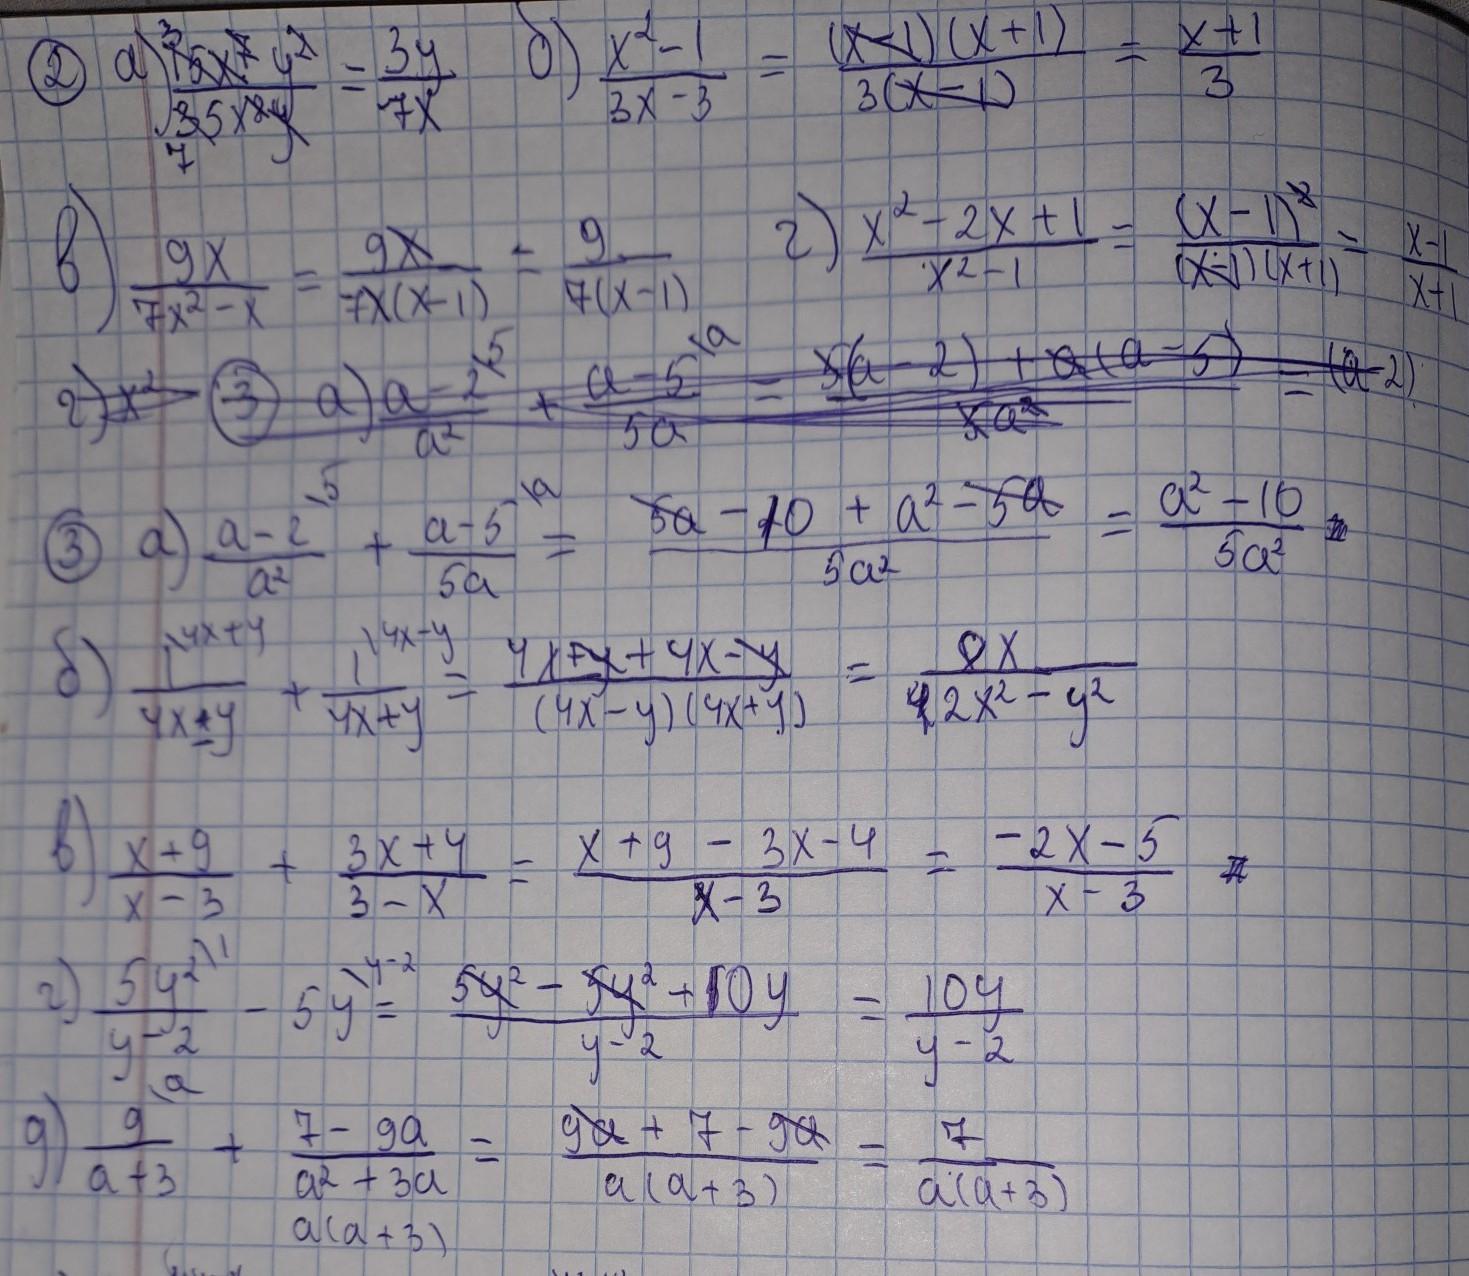 ② а) 15x⁷y²/35x²y = 3y/7x б) (x²-1)/(3x-3) = (x-1)(x+1)/3(x-1) = (x+1)/3
3
7
в) 9x/(7x²-x) = 9x/7x(x-1) = 9/7(x-1) г) (x²-2x+1)/(x²-1) = (x-1)²/(x-1)(x+1) = (x-1)/(x+1)
г) x² ③ а) (a-2)/a² \5 + (a-5)/5a \a = (5(a-2)+a(a-5))/5a² = (a-2)
③ а) (a-2)/a² \5 + (a-5)/5a \a = (5a-10+a²-5a)/5a² = (a²-10)/5a²
б) 1/(4x-y) \4x+y + 1/(4x+y) \4x-y = (4x+y+4x-y)/(4x-y)(4x+y) = 8x/(42x²-y²)
в) (x+9)/(x-3) + (3x+4)/(3-x) = (x+9-3x-4)/(x-3) = (-2x-5)/(x-3)
г) 5y²/(y-2) \1 - 5y \y-2 = (5y²-5y²+10y)/(y-2) = 10y/(y-2)
д) 9/(a+3) \a + (7-9a)/(a²+3a) = (9a+7-9a)/a(a+3) = 7/a(a+3)
a(a+3)